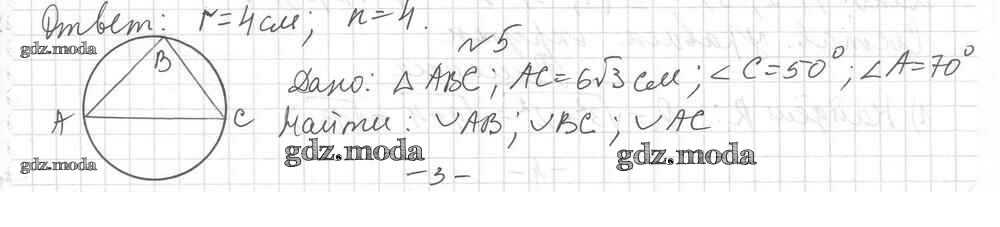 Ответ: r=4 см; n=4.
№5
gdz.moda
B
Дано: △ABC; AC=6√3 см; ∠C=50°; ∠A=70°
A
C
Найти: ◡AB; ◡BC; ◡AC
gdz.moda
gdz.moda
gdz.moda
-3-